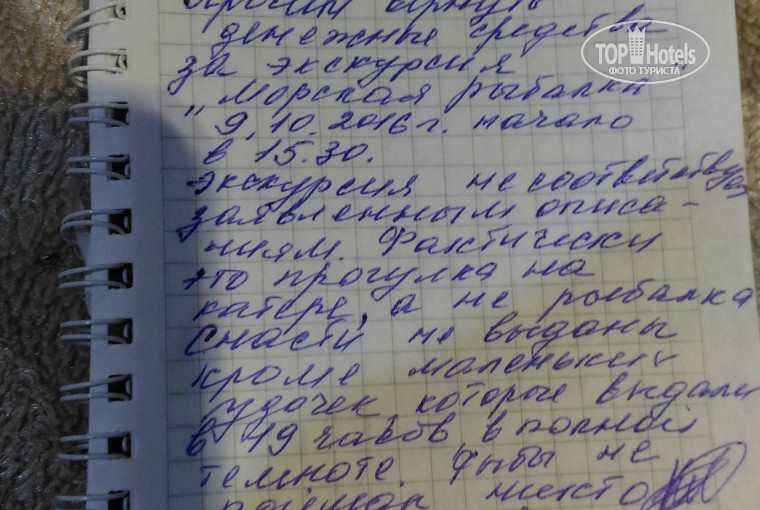 Просим вернуть
денежные средства
за экскурсия
"Морская рыбалка"
9.10.2016г. начало
в 15.30.
экскурсия не соответствует
заявленным описа-
ниям. Фактически
это прогулка на
катере, а не рыбалка
Снасти не выданы
кроме маленьких
удочек, которые выдали
в 19 часов в полной
темноте. Рыбы не
никто
TOP Hotels
ФОТО ТУРИСТА